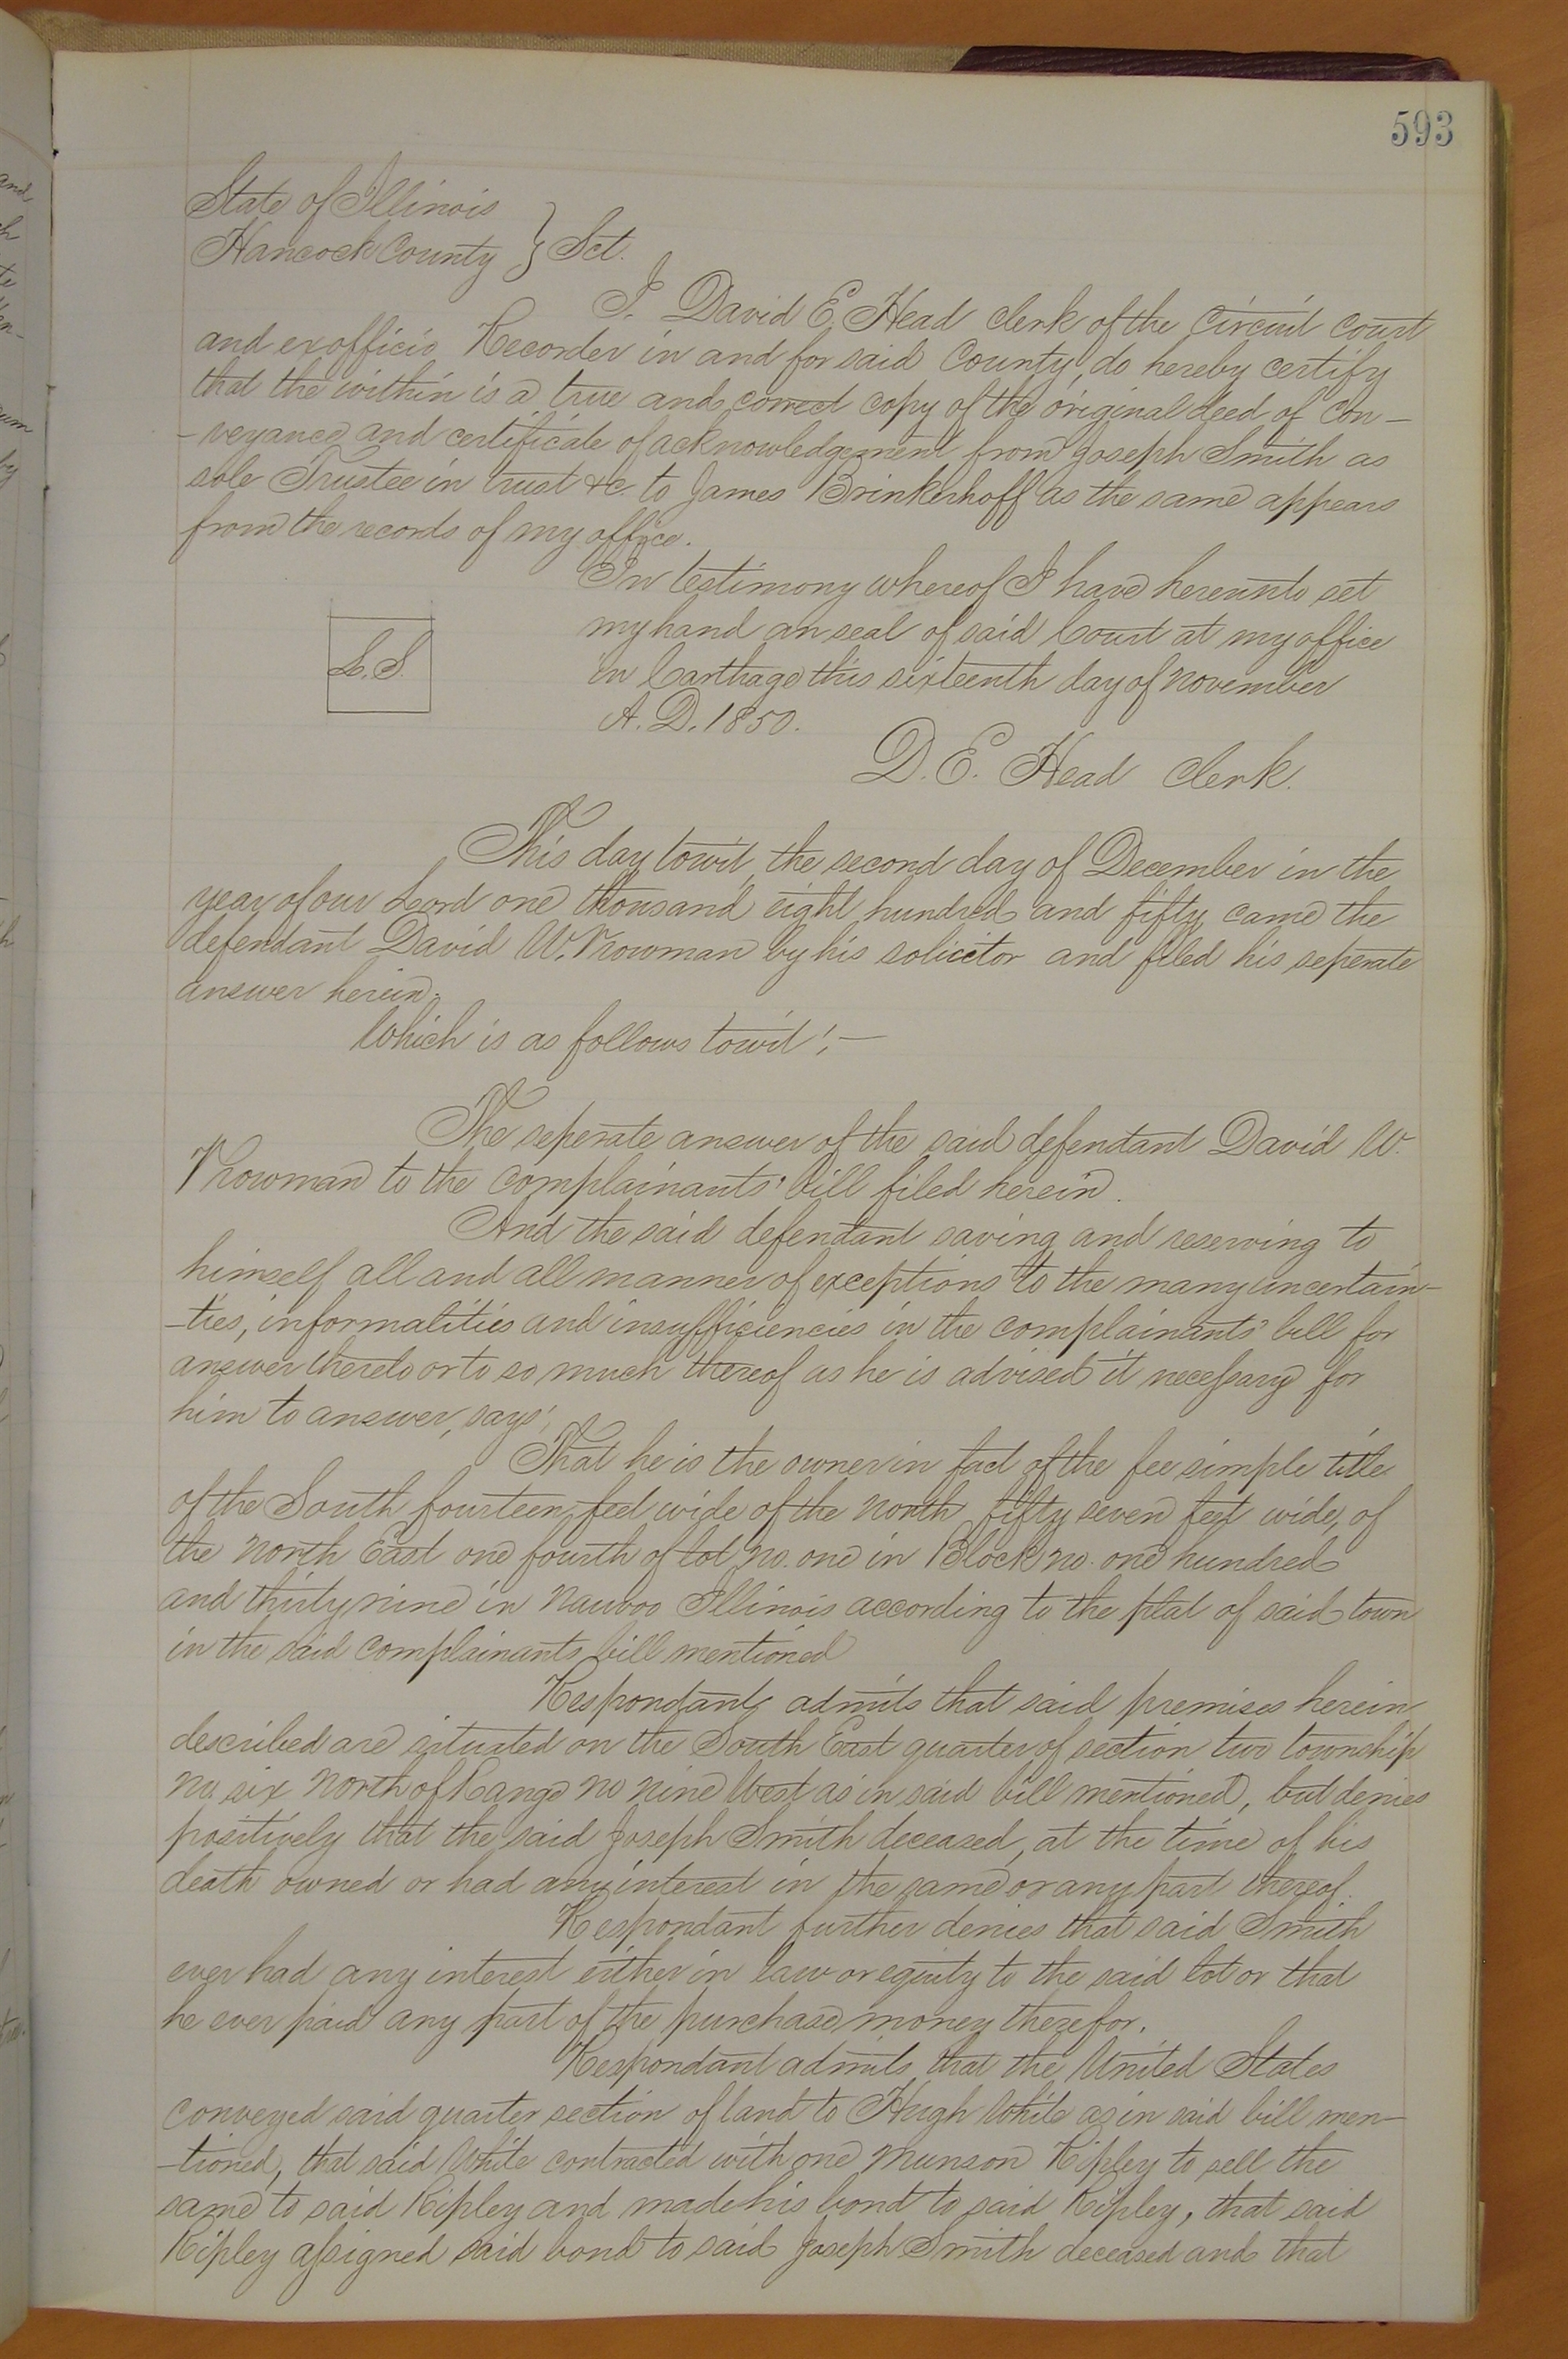 593
State of Illinois
Hancock County } Sct.
I. David E. Head clerk of the Circuit Court
and exofficio Recorder in and for said County, do hereby certify
that the within is a true and correct copy of the original deed of Con-
-veyance and certificate of acknowledgement from Joseph Smith as
sole Trustee in trust &c. to James Brinkerhoff as the same appears
from the records of my office.
In testimony whereof I have hereunto set
my hand an seal of said Court at my office
in Carthage this sixteenth day of November
A. D. 1850.
L. S.
D. E. Head Clerk.
This day towit, the second day of December in the
year of our Lord one thousand eight hundred and fifty came the
defendant David W. Vrowman by his solicitor and filed his seperate
answer herein.
Which is as follows towit:-
The seperate answer of the said defendant David W.
Vrowman to the complainants' bill filed herein.
And the said defendant saving and reserving to
himself all and all manner of exceptions to the many uncertain-
-ties, informalities and insufficiencies in the complainants' bill for
answer thereto or to so much thereof as he is advised it necessary for
him to answer, says;
That he is the owner in fact of the fee simple title
of the South fourteen feet wide of the North fifty seven feet wide, of
the North East one fourth of lot no. one in Block no. one hundred
and thirty nine in Nauvoo Illinois according to the plat of said town
in the said complainants bill mentioned
Respondant admits that said premises herein
described are situated on the South East quarter of section two township
no. six North of Range no nine West as in said bill mentioned, but denies
positively that the said Joseph Smith deceased, at the time of his
death owned or had any interest in the same or any part thereof.
Respondant further denies that said Smith
ever had any interest either in law or equity to the said lot or that
he ever paid any part of the purchase money therefor.
Respondant admits that the United States
conveyed said quarter section of land to Hugh White as in said bill men-
-tioned, that said White contracted with one Munson Ripley to sell the
same to said Ripley and made his bond to said Ripley, that said
Ripley assigned said bond to said Joseph Smith deceased and that